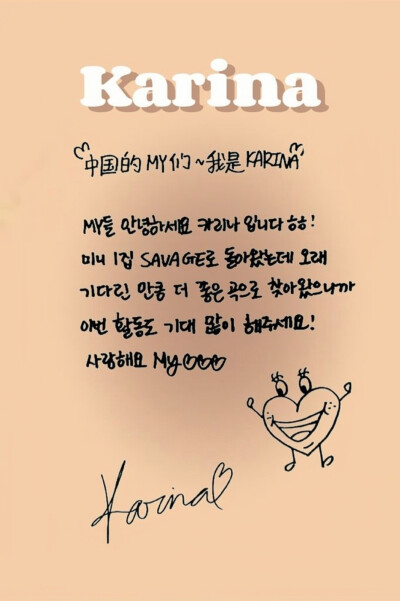 Karina
中国的 MY们~我是 KARINA
MY들 안녕하세요 카리나 입니다 ㅎㅎ!
미니 1집 SAVAGE로 돌아왔는데 오래
기다린 만큼 더 좋은 곡으로 찾아왔으니까
이번 활동도 기대 많이 해주세요!
사랑해요 My♡♡♡
Karina♡